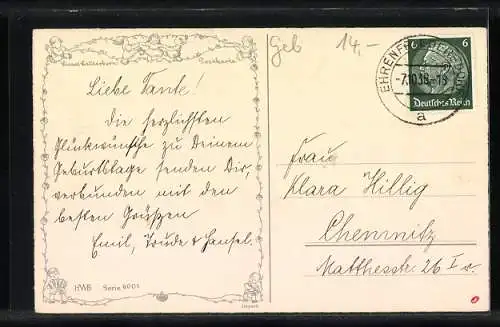 Geb 14,-
Postkarte
Liebe Tante!
Die herzlichsten
Glückwünsche zu Deinem
Geburtstage senden Dir,
verbunden mit den
besten Grüßen
Emil, Trude & Hansel.
HWB Serie 6001
6 6
Deutsches Reich
-7.10.38.-
a
Frau
Klara Hillig
Chemnitz
Matthesstr. 26 I